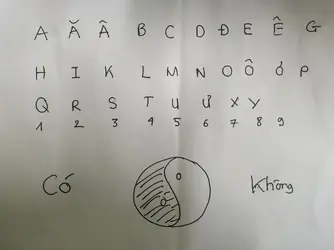 A Ă Â B C D Đ E Ê G
H I K L M N O Ô Ơ P
Q R S T U Ư X Y
1 2 3 4 5 6 7 8 9
Có Không